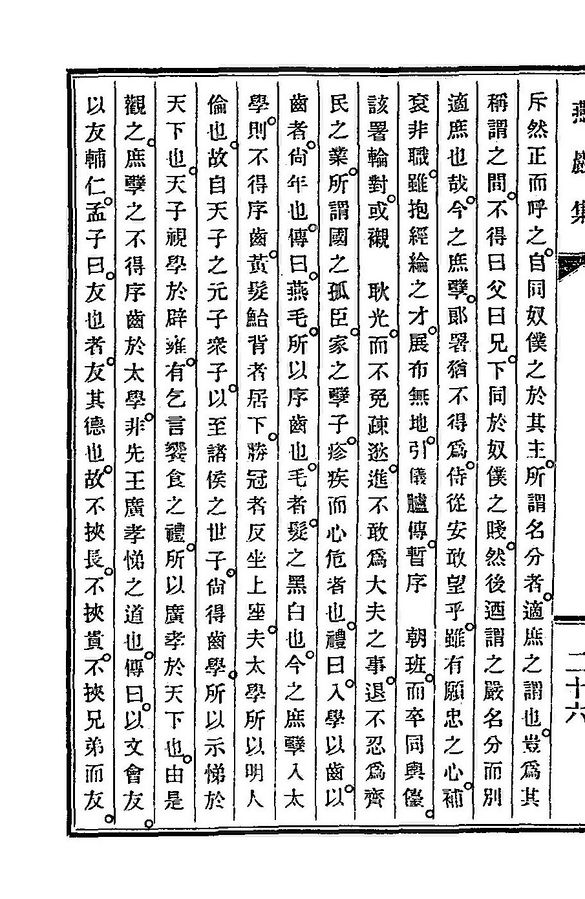 燕巖集
二十六
斥然正而呼之。自同奴僕之於其主。所謂名分者。適庶之謂也。豈爲其
稱謂之間。不得曰父曰兄。下同於奴僕之賤。然後迺謂之嚴名分而別
適庶也哉。今之庶孼。郞署猶不得爲。侍從安敢望乎。雖有願忠之心。補
袞非職。雖抱經綸之才。展布無地。引儀臚傳。暫序 朝班。而卒同輿儓。
該署輪對。或襯 耿光。而不免疎逖。進不敢爲大夫之事。退不忍爲齊
民之業。所謂國之孤臣。家之孼子。疹疾而心危者也。禮曰。入學以齒。以
齒者。尙年也。傳曰。燕毛。所以序齒也。毛者。髮之黑白也。今之庶孼入太
學。則不得序齒。黃髮鮐背者居下。勝冠者反坐上座。夫太學所以明人
倫也。故自天子之元子衆子。以至諸侯之世子。尙得齒學。所以示悌於
天下也。天子視學於辟雍。有乞言饗食之禮。所以廣孝於天下也。由是
觀之。庶孼之不得序齒於太學。非先王廣孝悌之道也。傳曰。以文會友。
以友輔仁。孟子曰。友也者友其德也。故不挾長。不挾貴。不挾兄弟而友。